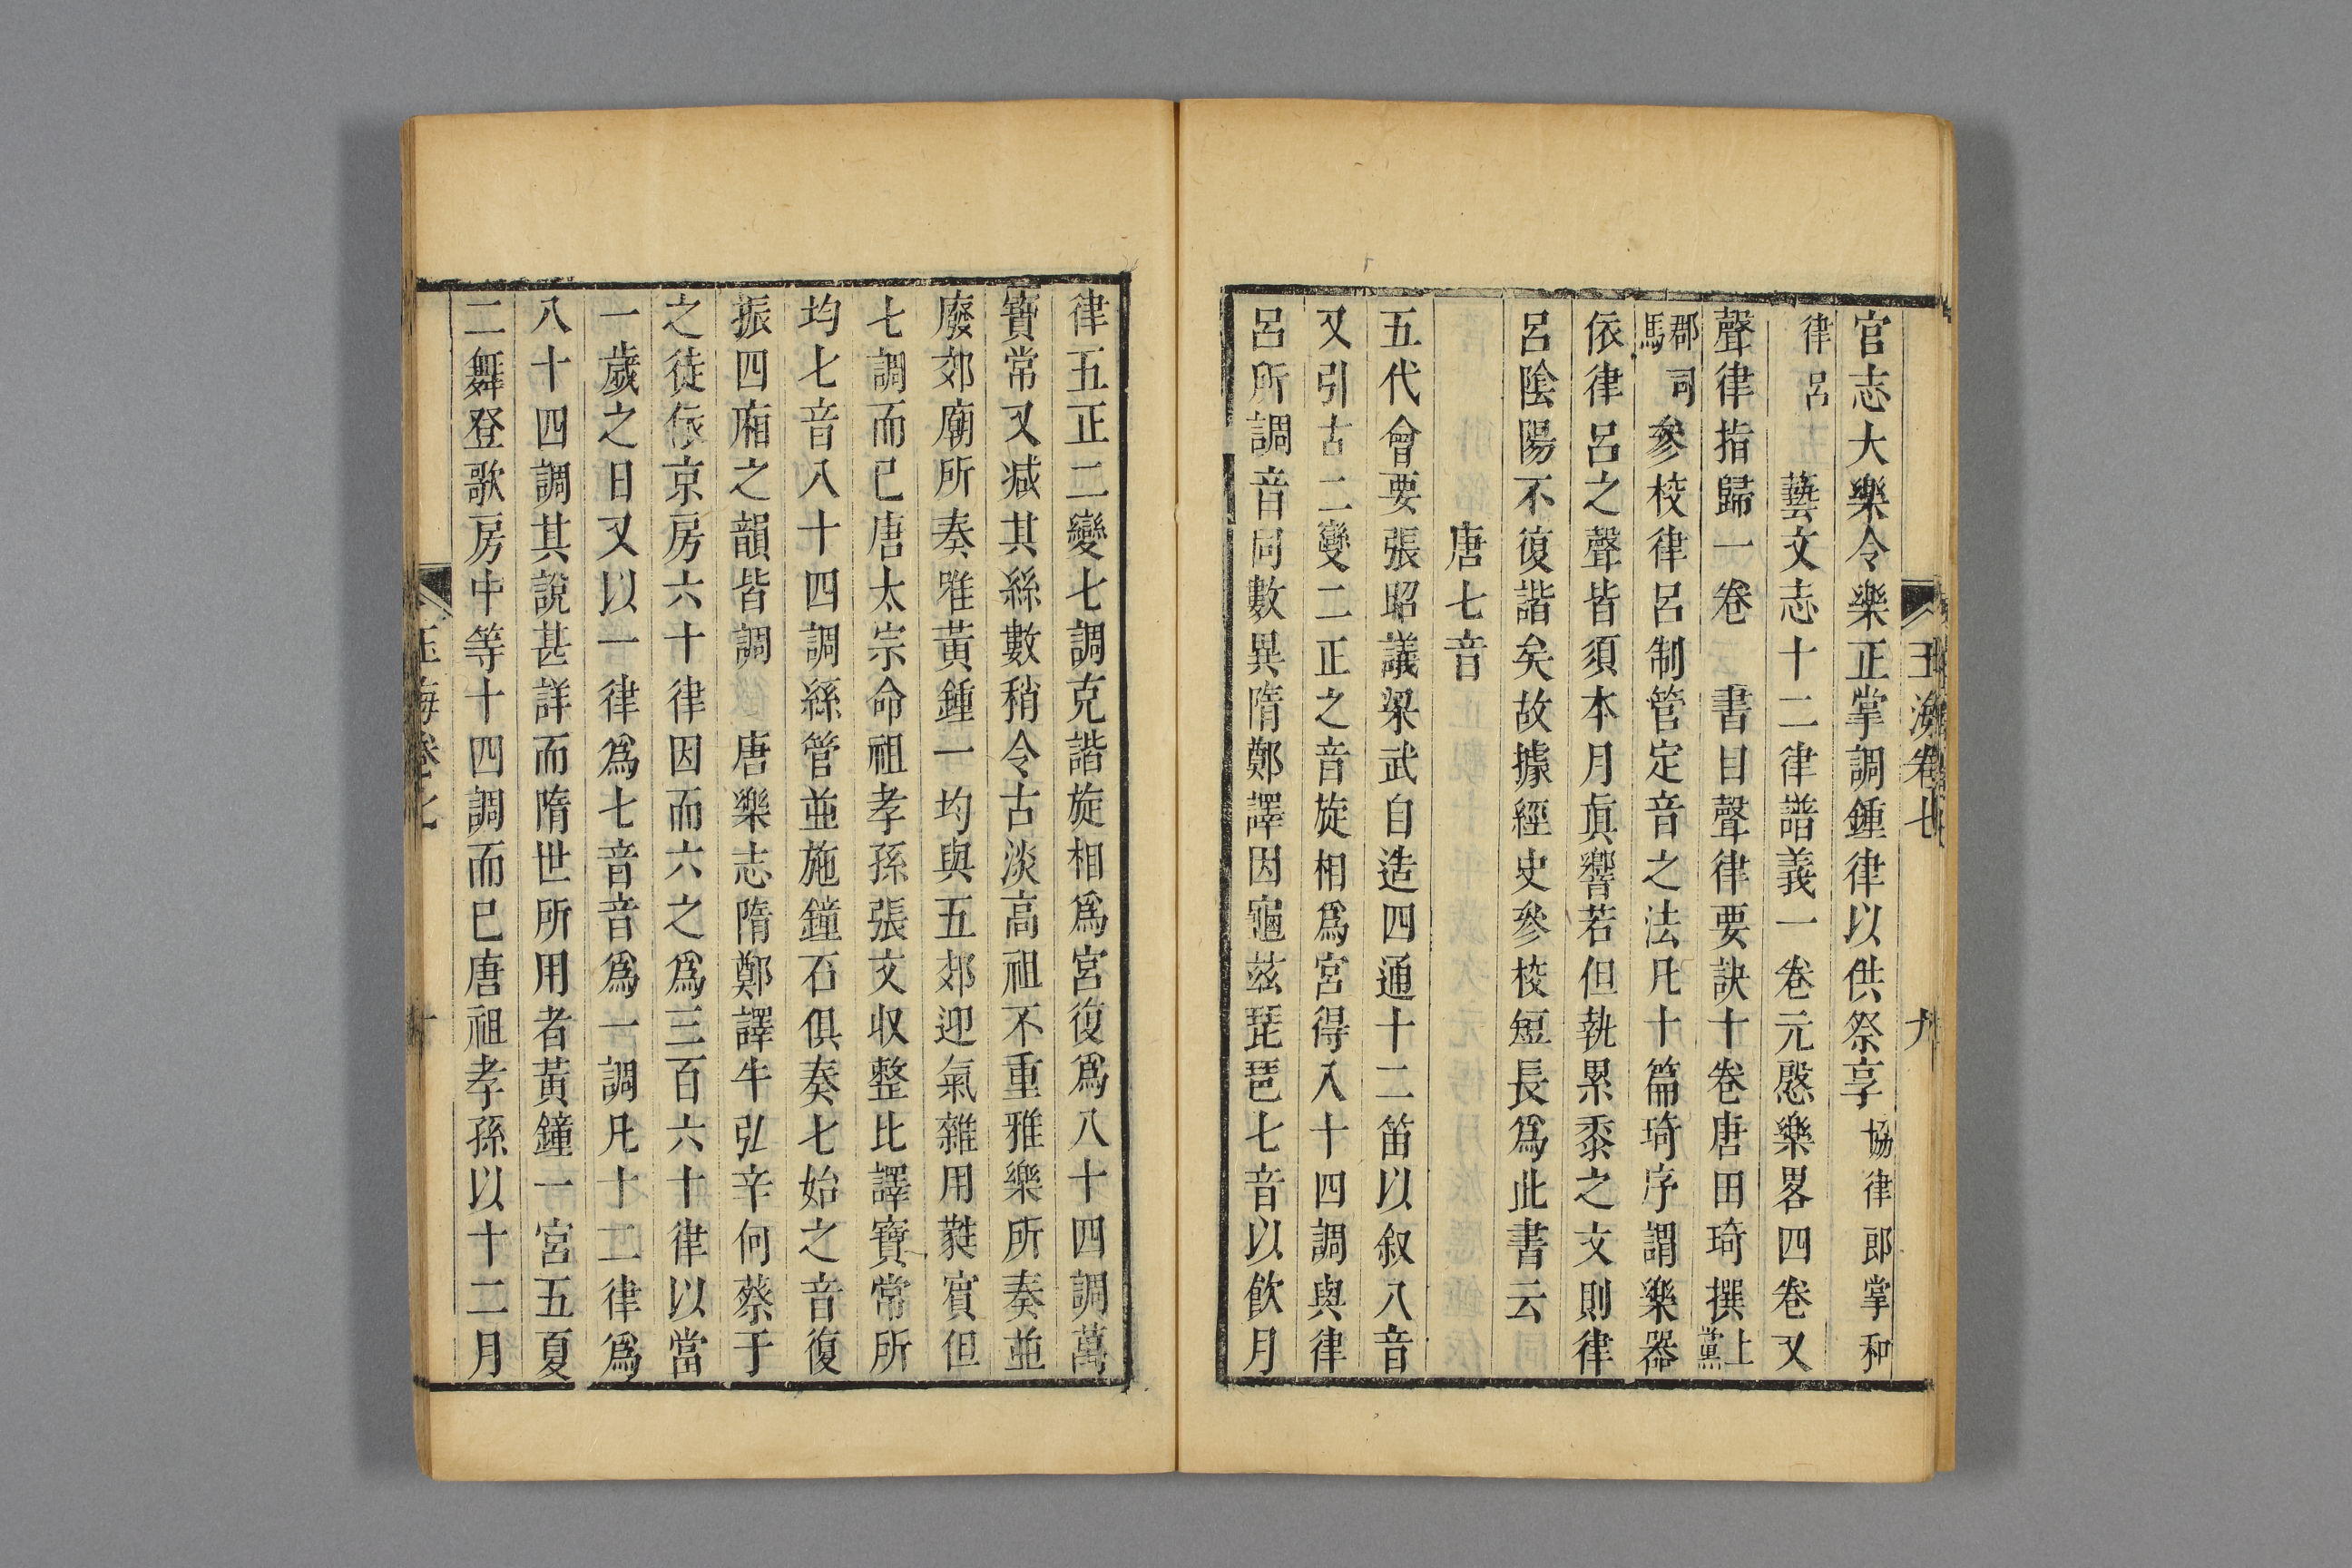 玉海卷七 九
官志大樂令樂正掌調鍾律以供祭享協律郎掌和
律呂 藝文志十二律譜義一卷元慇樂畧四卷又
聲律指歸一卷 書目聲律要訣十卷唐田琦撰上黨
郡司馬參校律呂制管定音之法凡十篇琦序謂樂器
依律呂之聲皆須本月眞響若但執累黍之文則律
呂陰陽不復諧矣故據經史參校短長爲此書云
唐七音
五代會要張昭議梁武自造四通十二笛以叙八音
又引古二變二正之音旋相爲宮得八十四調與律
呂所調音同數異隋鄭譯因龜茲琵琶七音以飮月
律五正二變七調克諧旋相爲宮復爲八十四調萬
寶常又減其絲數稍令古淡高祖不重雅樂所奏並
廢郊廟所奏唯黃鍾一均與五郊迎氣雜用蕤賓但
七調而已唐太宗命祖孝孫張文収整比譯寶常所
均七音八十四調絲管並施鐘石俱奏七始之音復
振四廂之韻皆調 唐樂志隋鄭譯牛弘辛何蔡于
之徒依京房六十律因而六之爲三百六十律以當
一歲之日又以一律爲七音音爲一調凡十二律爲
八十四調其說甚詳而隋世所用者黃鐘一宮五夏
二舞登歌房中等十四調而已唐祖孝孫以十二月
玉海卷七 十